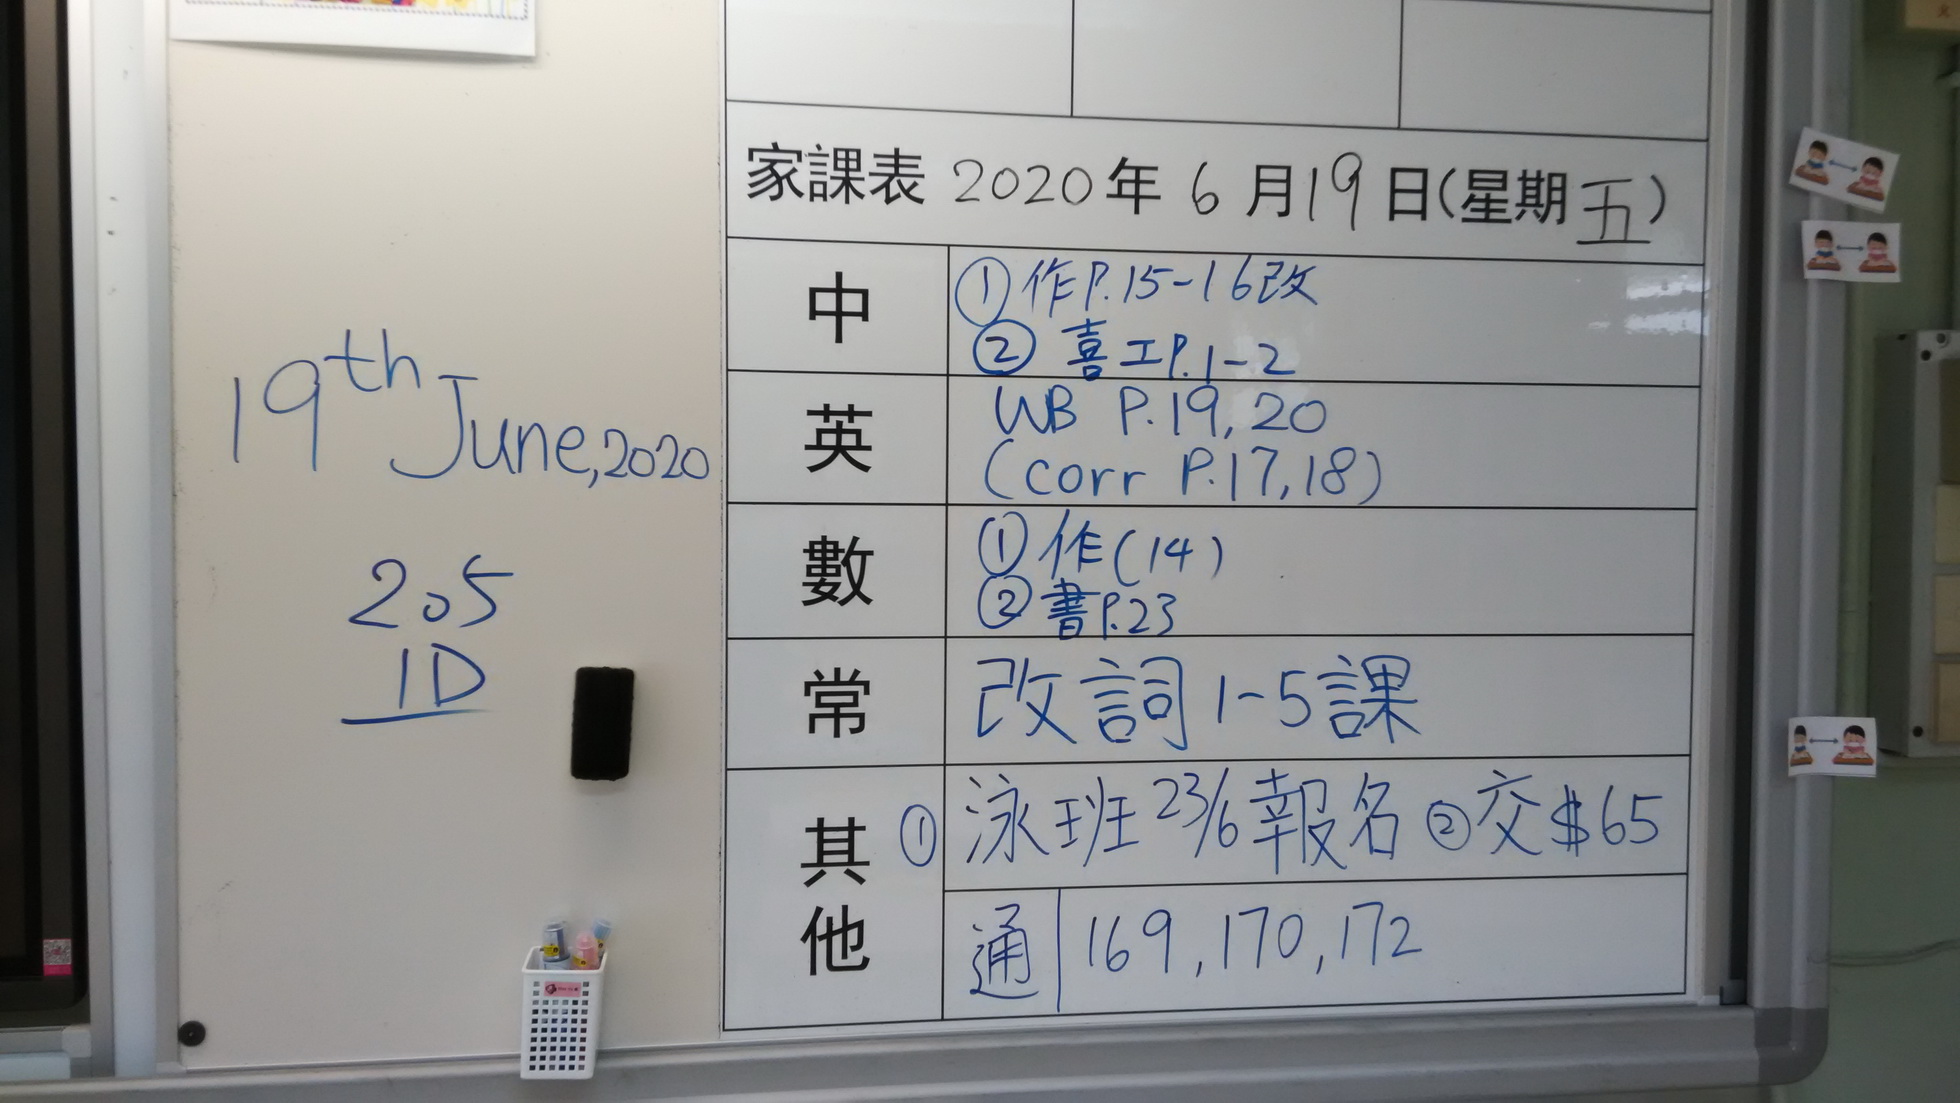 19th June, 2020
205
1D
家課表 2020年 6月19日(星期五)
中
① 作P.15-16改
② 喜工P.1-2
英
WB P.19,20
(corr P.17,18)
數
① 作(14)
② 書P.23
常
改詞 1-5課
其他
① 泳班 23/6 報名 ② 交 $65
通 169, 170, 172